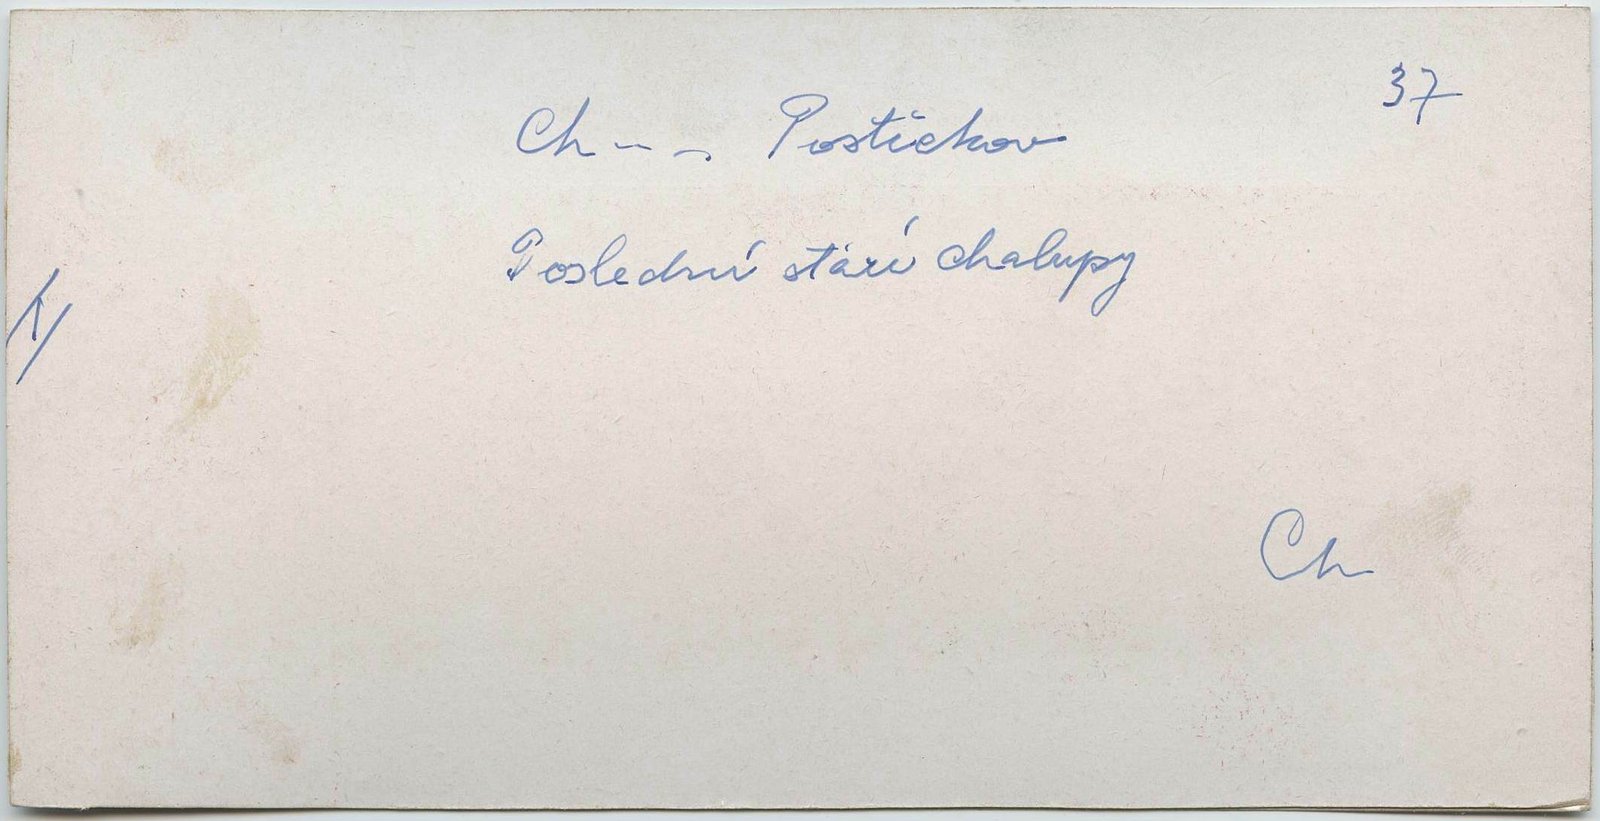 37
Ch - - - Postřekov
Poslední staří chalupy
Ch